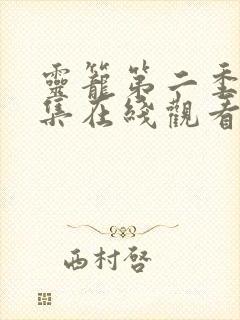 靈籠第二季
集在綫觀看
西村啓